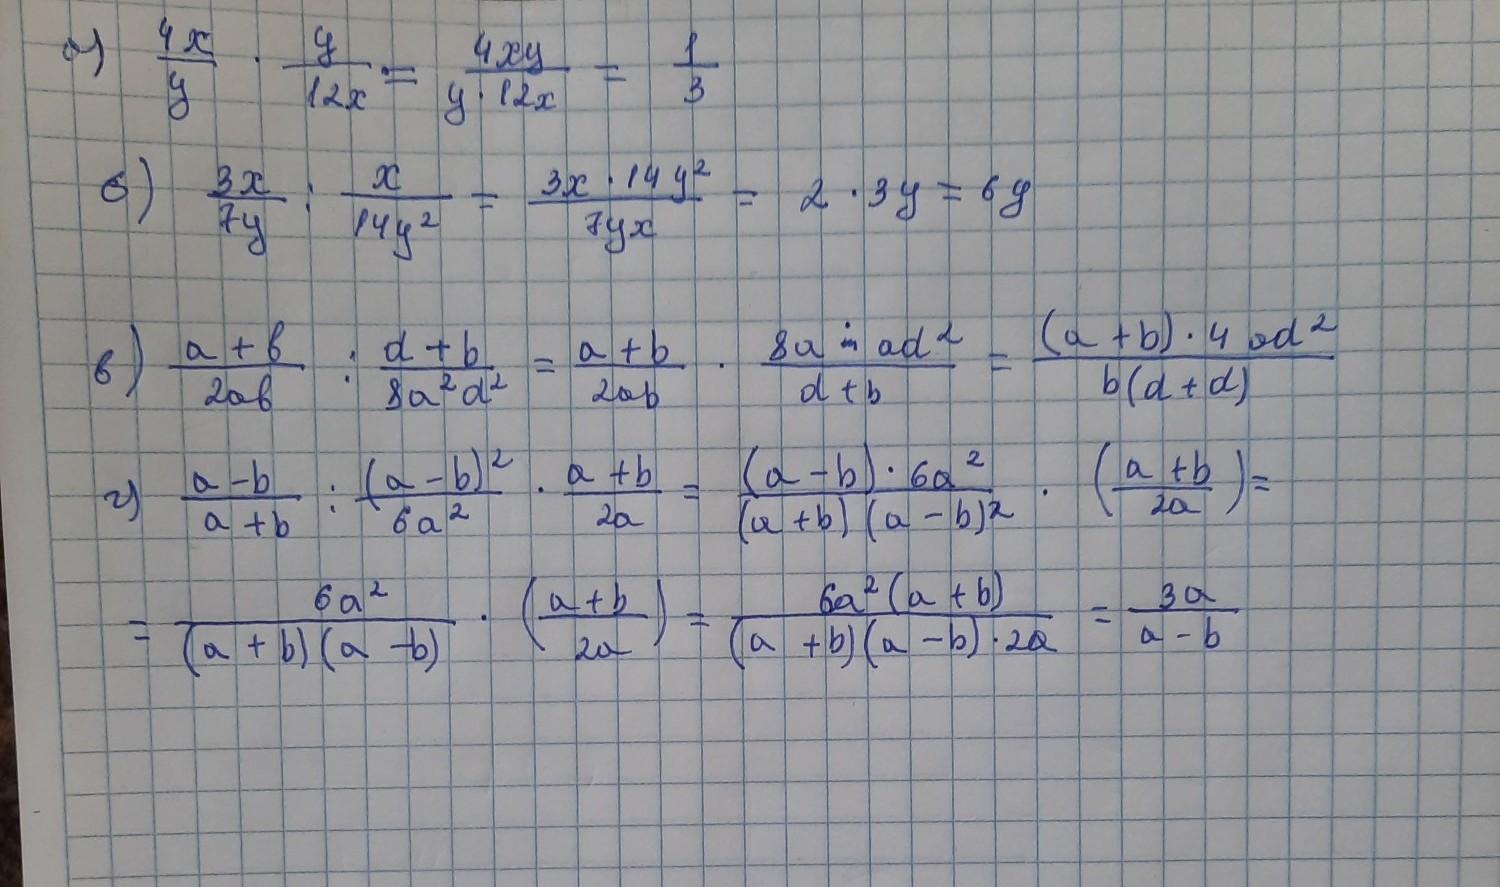 а) 4x/y · y/12x = 4xy/y·12x = 1/3
б) 3x/7y : x/14y² = 3x·14y²/7yx = 2·3y = 6y
в) a+b/2ab : d+b/8a²d² = a+b/2ab · 8a·ad²/d+b = (a+b)·4ad²/b(d+d)
г) a-b/a+b : (a-b)²/6a² · a+b/2a = (a-b)·6a²/(a+b)(a-b)² · (a+b/2a) =
= 6a²/(a+b)(a-b) · (a+b/2a) = 6a²(a+b)/(a+b)(a-b)·2a = 3a/a-b